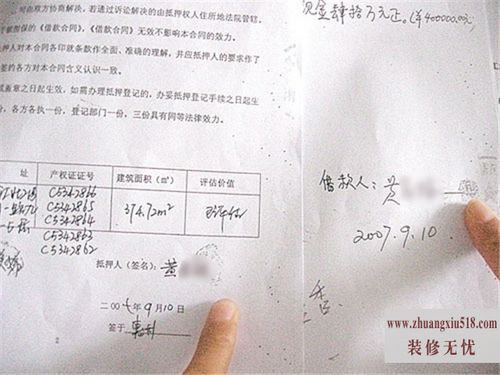 时由双方协商解决，若通过诉讼解决的由抵押权人住所地法院管辖。
担保的《借款合同》，《借款合同》无效不影响本合同的效力。
押人对本合同各印就条款作全面、准确的理解，并应抵押人的要求作了
签约各方对本合同含义认识一致。
或盖章之日起生效，如需办理抵押登记的，办妥抵押登记手续之日起生
份，各方各执一份，登记部门一份，三份具有同等法律效力。
址 产权证证号 建筑面积（㎡） 评估价值
C5342866
C5342865 374.72m²
C5342864
C5342863
C5342862
抵押人（签名）：黄
二00七年9月10日
签于
2
现金肆拾万元正。(¥400000.00元)
借款人：黄
2007.9.10
www.zhuangxiu518.com
装修无忧